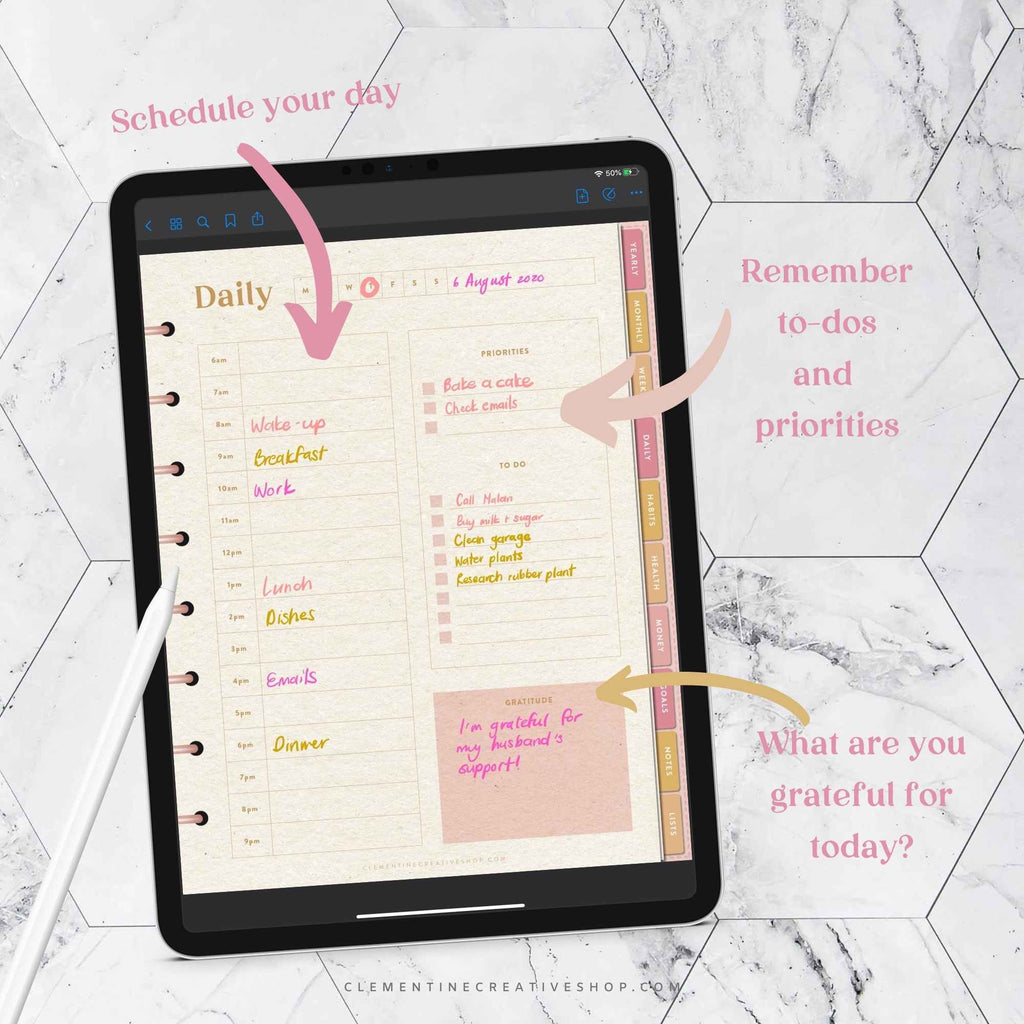 Schedule your day
50%
Daily
M W 6 F S S 6 August 2020
6am
7am
8am Wake-up
9am Breakfast
10am Work
11am
12pm
1pm Lunch
2pm Dishes
3pm
4pm Emails
5pm
6pm Dinner
7pm
8pm
9pm
PRIORITIES
Bake a cake
Check emails
TO DO
Call Malan
Buy milk + sugar
Clean garage
Water plants
Research rubber plant
GRATITUDE
I'm grateful for
my husband's
support!
CLEMENTINECREATIVESHOP.COM
YEARLY
MONTHLY
WEEK
DAILY
HABITS
HEALTH
MONEY
GOALS
NOTES
LISTS
Remember
to-dos
and
priorities
What are you
grateful for
today?
CLEMENTINECREATIVESHOP.COM